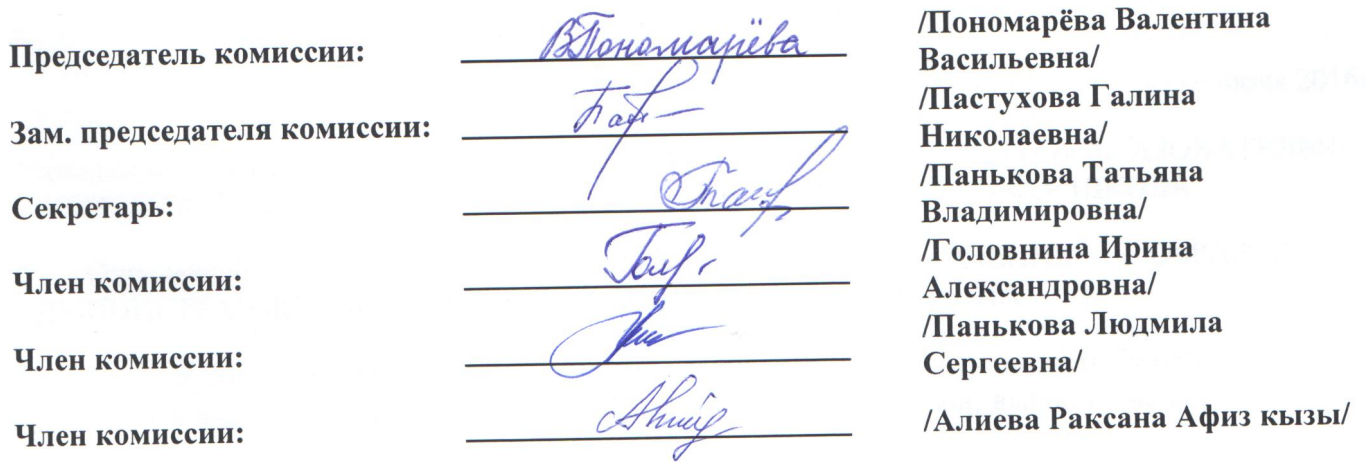 Председатель комиссии: ВПономарёва /Пономарёва Валентина
Васильевна/
Зам. председателя комиссии: /Пастухова Галина
Николаевна/
Секретарь: /Панькова Татьяна
Владимировна/
Член комиссии: /Головнина Ирина
Александровна/
Член комиссии: /Панькова Людмила
Сергеевна/
Член комиссии: /Алиева Раксана Афиз кызы/